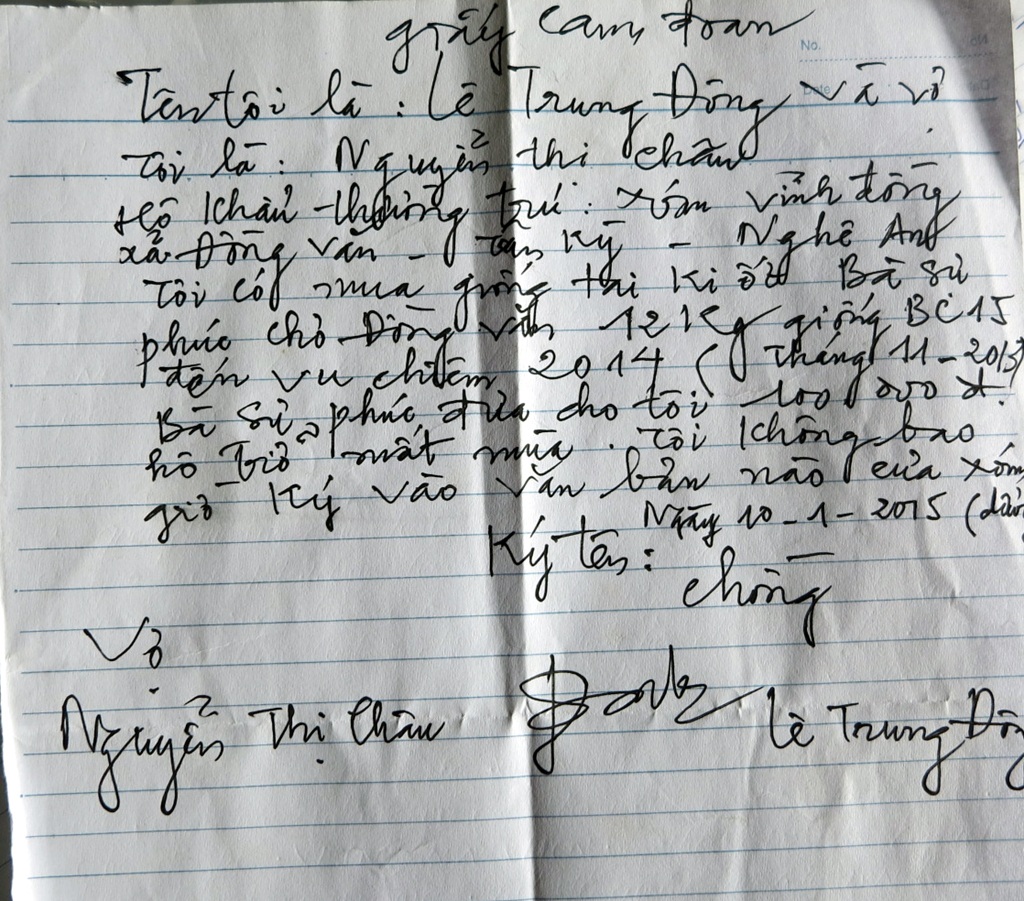 giấy cam đoan
No.
Date
Tên tôi là: Lê Trung Đông và vợ
tôi là: Nguyễn thi châu
Hộ khẩu thường trú: xóm vĩnh đồng
xã Đồng văn - tân kỳ - Nghệ An
Tôi có mua giống tại Ki ốt Bà Sử
phúc chợ Đồng văn 12 Kg giống BC15
đến vụ chiêm 2014 (Tháng 11-2013)
Bà Sử phúc đưa cho tôi 100 000 đ.
hỗ trợ mất mùa. Tôi không bao
giờ ký vào văn bản nào của xóm
Ngày 10-1-2015
Ký tên:
chồng
Vợ
Nguyễn Thị Châu
Lê Trung Đông